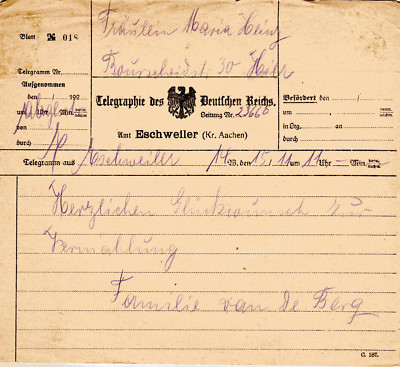 Blatt № 018
Fräulein Maria Heinz
Bourscheidstr. 30
Telegramm Nr.
Aufgenommen
den / 192
um Uhr Min.
von
durch
Telegraphie des Deutschen Reichs.
Leitung Nr. 23660
Amt Eschweiler (Kr. Aachen)
Befördert den /
um Uhr Min.
in Ltg. an
durch
Telegramm aus Eschweiler 14 W. den 15/11 um 11 Uhr — Min.
Herzlichen Glückwunsch zur
Vermählung
Familie van de Berg
C. 187.